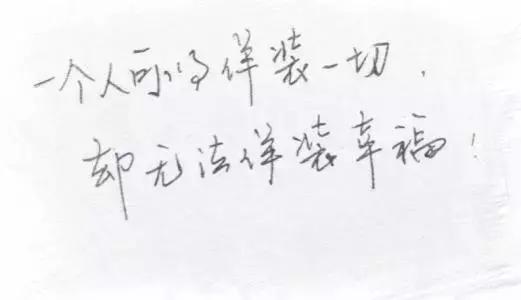 一个人可以佯装一切，
却无法佯装幸福！